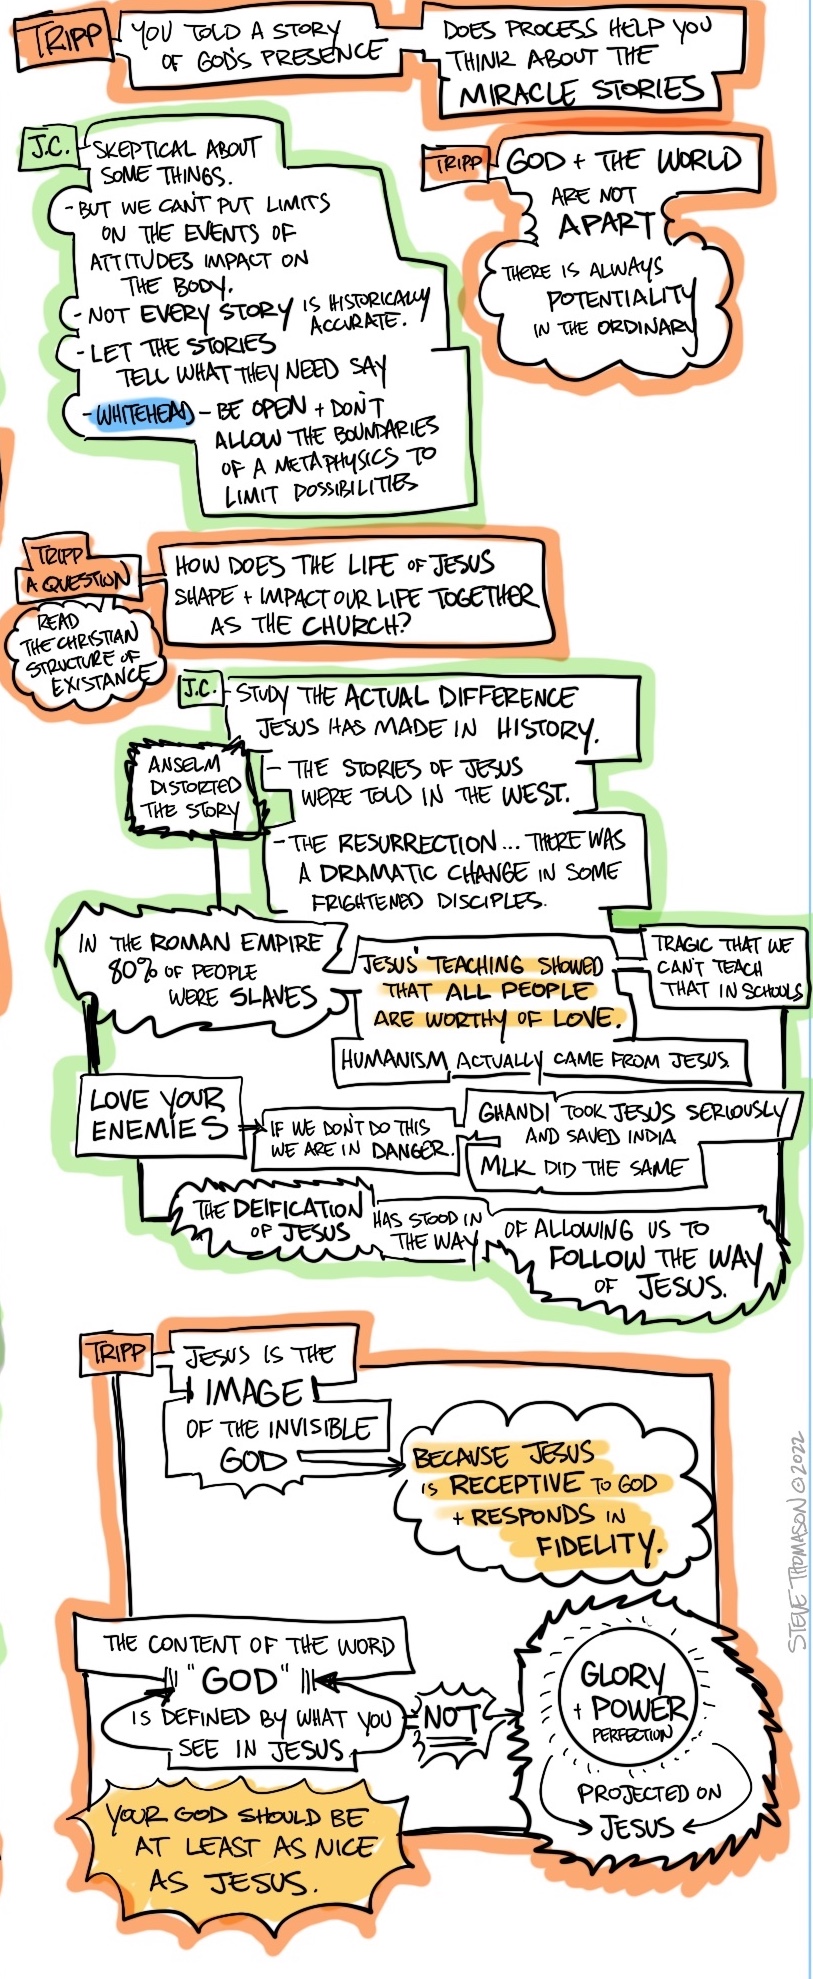 TRIPP
YOU TOLD A STORY
OF GOD'S PRESENCE
DOES PROCESS HELP YOU
THINK ABOUT THE
MIRACLE STORIES
J.C.
SKEPTICAL ABOUT
SOME THINGS.
- BUT WE CAN'T PUT LIMITS
ON THE EVENTS OF
ATTITUDES IMPACT ON
THE BODY.
- NOT EVERY STORY IS HISTORICALLY
ACCURATE.
- LET THE STORIES
TELL WHAT THEY NEED SAY
- WHITEHEAD - BE OPEN + DON'T
ALLOW THE BOUNDARIES
OF A METAPHYSICS TO
LIMIT POSSIBILITIES
TRIPP
GOD + THE WORLD
ARE NOT
APART
THERE IS ALWAYS
POTENTIALITY
IN THE ORDINARY
TRIPP
A QUESTION
READ
THE CHRISTIAN
STRUCTURE OF
EXISTANCE
HOW DOES THE LIFE OF JESUS
SHAPE + IMPACT OUR LIFE TOGETHER
AS THE CHURCH?
J.C.
- STUDY THE ACTUAL DIFFERENCE
JESUS HAS MADE IN HISTORY.
ANSELM
DISTORTED
THE STORY
- THE STORIES OF JESUS
WERE TOLD IN THE WEST.
- THE RESURRECTION... THERE WAS
A DRAMATIC CHANGE IN SOME
FRIGHTENED DISCIPLES.
IN THE ROMAN EMPIRE
80% OF PEOPLE
WERE SLAVES
JESUS' TEACHING SHOWED
THAT ALL PEOPLE
ARE WORTHY OF LOVE.
TRAGIC THAT WE
CAN'T TEACH
THAT IN SCHOOLS
HUMANISM ACTUALLY CAME FROM JESUS.
LOVE YOUR
ENEMIES
IF WE DON'T DO THIS
WE ARE IN DANGER.
GHANDI TOOK JESUS SERIOUSLY
AND SAVED INDIA
MLK DID THE SAME
THE DEIFICATION
OF JESUS
HAS STOOD IN
THE WAY
OF ALLOWING US TO
FOLLOW THE WAY
OF JESUS.
TRIPP
JESUS IS THE
IMAGE
OF THE INVISIBLE
GOD
BECAUSE JESUS
IS RECEPTIVE TO GOD
+ RESPONDS IN
FIDELITY.
THE CONTENT OF THE WORD
"GOD"
IS DEFINED BY WHAT YOU
SEE IN JESUS
NOT
GLORY
+ POWER
PERFECTION
PROJECTED ON
JESUS
YOUR GOD SHOULD BE
AT LEAST AS NICE
AS JESUS.
STEVE THOMASON © 2022